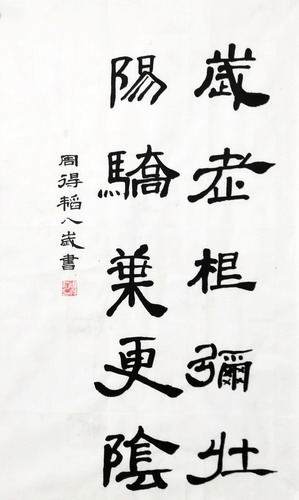 歲老根彌壯
陽驕葉更陰
周得韜八歲書